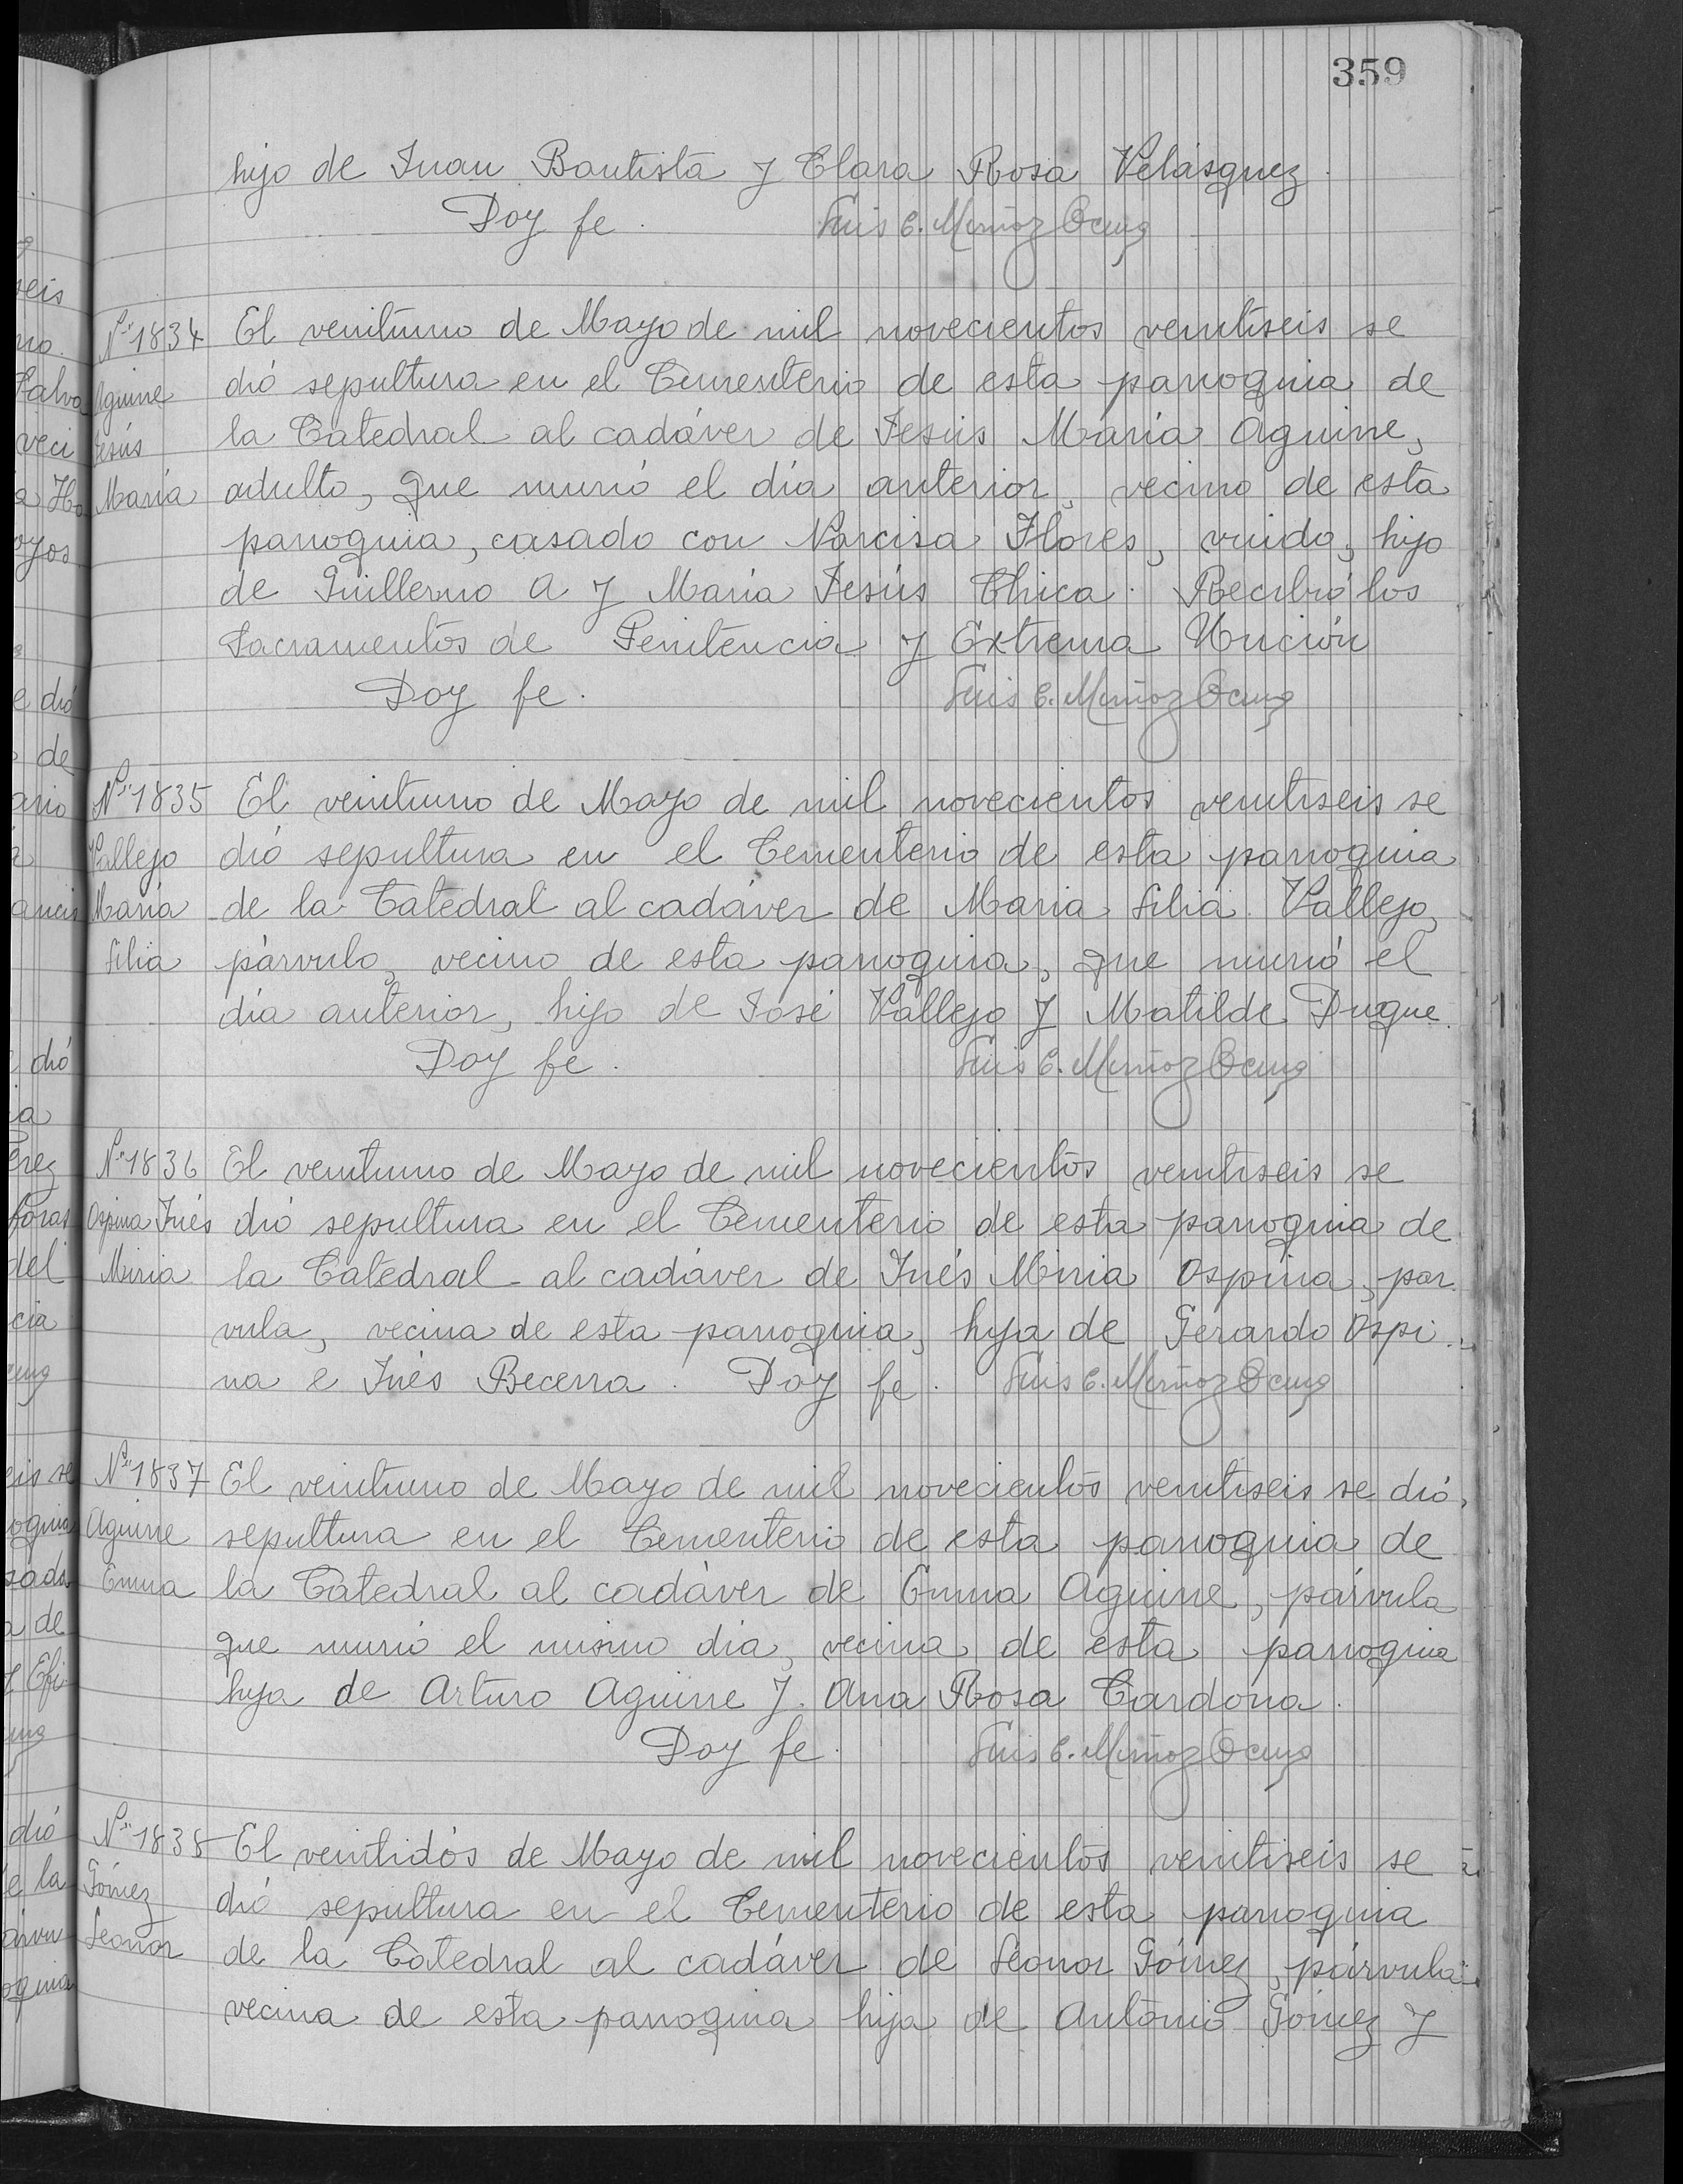 359
hijo de Juan Bautista y Clara Rosa Velásquez.
Doy fe. Luis E. Muñoz Ocmg
Nº 1834 El veintiuno de Mayo de mil novecientos veintiseis se
Aguirre dió sepultura en el Cementerio de esta parroquia de
Jesús la Catedral al cadáver de Jesús María Aguirre,
María adulto, que murió el día anterior, vecino de esta
parroquia, casado con Narcisa Flores, viudo, hijo
de Guillermo A y María Jesús Chica. Recibió los
Sacramentos de Penitencia y Extrema Unción
Doy fe. Luis E. Muñoz Ocmg
Nº 1835 El veintiuno de Mayo de mil novecientos veintiseis se
Vallejo dió sepultura en el Cementerio de esta parroquia
María de la Catedral al cadáver de Maria Lilia Vallejo,
Lilia párvulo, vecino de esta parroquia, que murió el
día anterior, hijo de José Vallejo y Matilde Duque.
Doy fe. Luis E. Muñoz Ocmg
Nº 1836 El veintiuno de Mayo de mil novecientos veintiseis se
Ospina Inés dió sepultura en el Cementerio de esta parroquia de
Miria la Catedral al cadáver de Inés Miria Ospina, par
vula, vecina de esta parroquia, hija de Gerardo Ospi
na e Inés Becerra. Doy fe. Luis E. Muñoz Ocmg
Nº 1837 El veintiuno de Mayo de mil novecientos veintiseis se dió
Aguirre sepultura en el Cementerio de esta parroquia de
Emma la Catedral al cadáver de Emma Aguirre, párvula
que murió el mismo día, vecina de esta parroquia
hija de Arturo Aguirre y Ana Rosa Cardona.
Doy fe. Luis E. Muñoz Ocmg
Nº 1838 El veintidós de Mayo de mil novecientos veintiseis se
Gómez dió sepultura en el Cementerio de esta parroquia
Leonor de la Catedral al cadáver de Leonor Gómez, párvula
vecina de esta parroquia hija de Antonio Gómez y